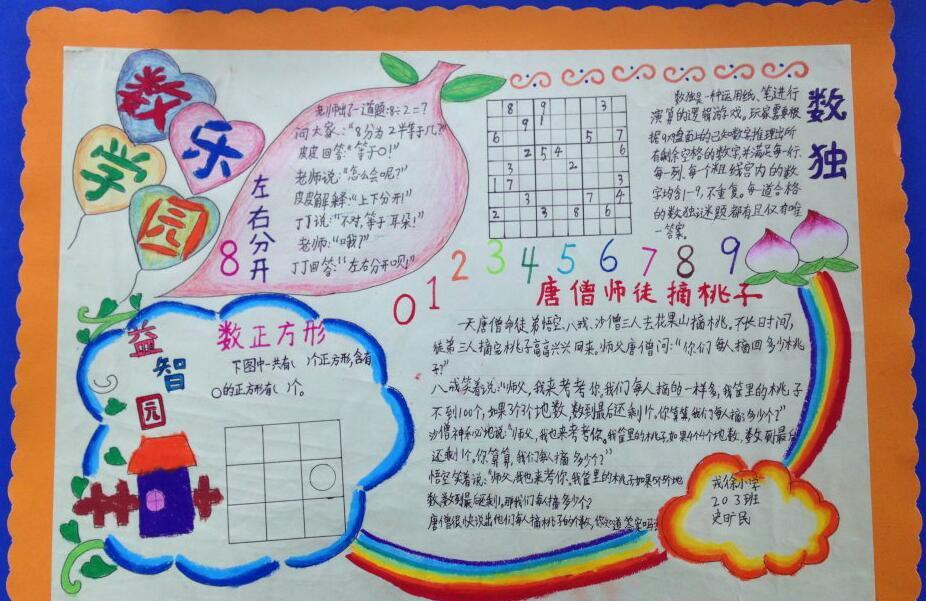 数学乐园
左右分开
8
老师出了一道题:8÷2=?
问大家:“8分为2半等于几?”
皮皮回答:“等于0!”
老师说:“怎么会呢?”
皮皮解释:“上下分开!”
丁丁说:“不对,等于耳朵!”
老师:“哦?”
丁丁回答:“左右分开呗!”
8 9 3
9 1
6 5 7
2 5 4 6
3 2
1 7 3
3 7 4
2 3 8 6
数独
数独是一种运用纸、笔进行
演算的逻辑游戏。玩家需要根
据9×9盘面上的已知数字,推理出所
有剩余空格的数字,并满足每一行、
每一列、每个粗线宫内的数
字均含1-9,不重复。每一道合格
的数独谜题都有且仅有唯
一答案。
0 1 2 3 4 5 6 7 8 9
唐僧师徒摘桃子
一天唐僧命徒弟悟空、八戒、沙僧三人去花果山摘桃。不长时间,
徒弟三人摘完桃子高高兴兴回来。师父唐僧问:“你们每人摘回多少桃
子?”
八戒笑着说:“师父,我来考考你。我们每人摘的一样多,我筐里的桃子
不到100个,如果3个3个地数,数到最后还剩1个,你算算,我们每人摘了多少个?”
沙僧神秘地说:“师父,我也来考考你。我筐里的桃子,如果4个4个地数,数到最后
还剩1个,你算算,我们每人摘多少个?”
悟空笑着说:“师父,我也来考你。我筐里的桃子如果5个5个地
数,数到最后还剩1个。那我们每人摘多少个?
唐僧很快说出他们每人摘桃子的个数,你知道答案吗?
益智园
数正方形
下图中一共有( )个正方形,含有
○的正方形有( )个。
戎徐小学
203班
史旷民